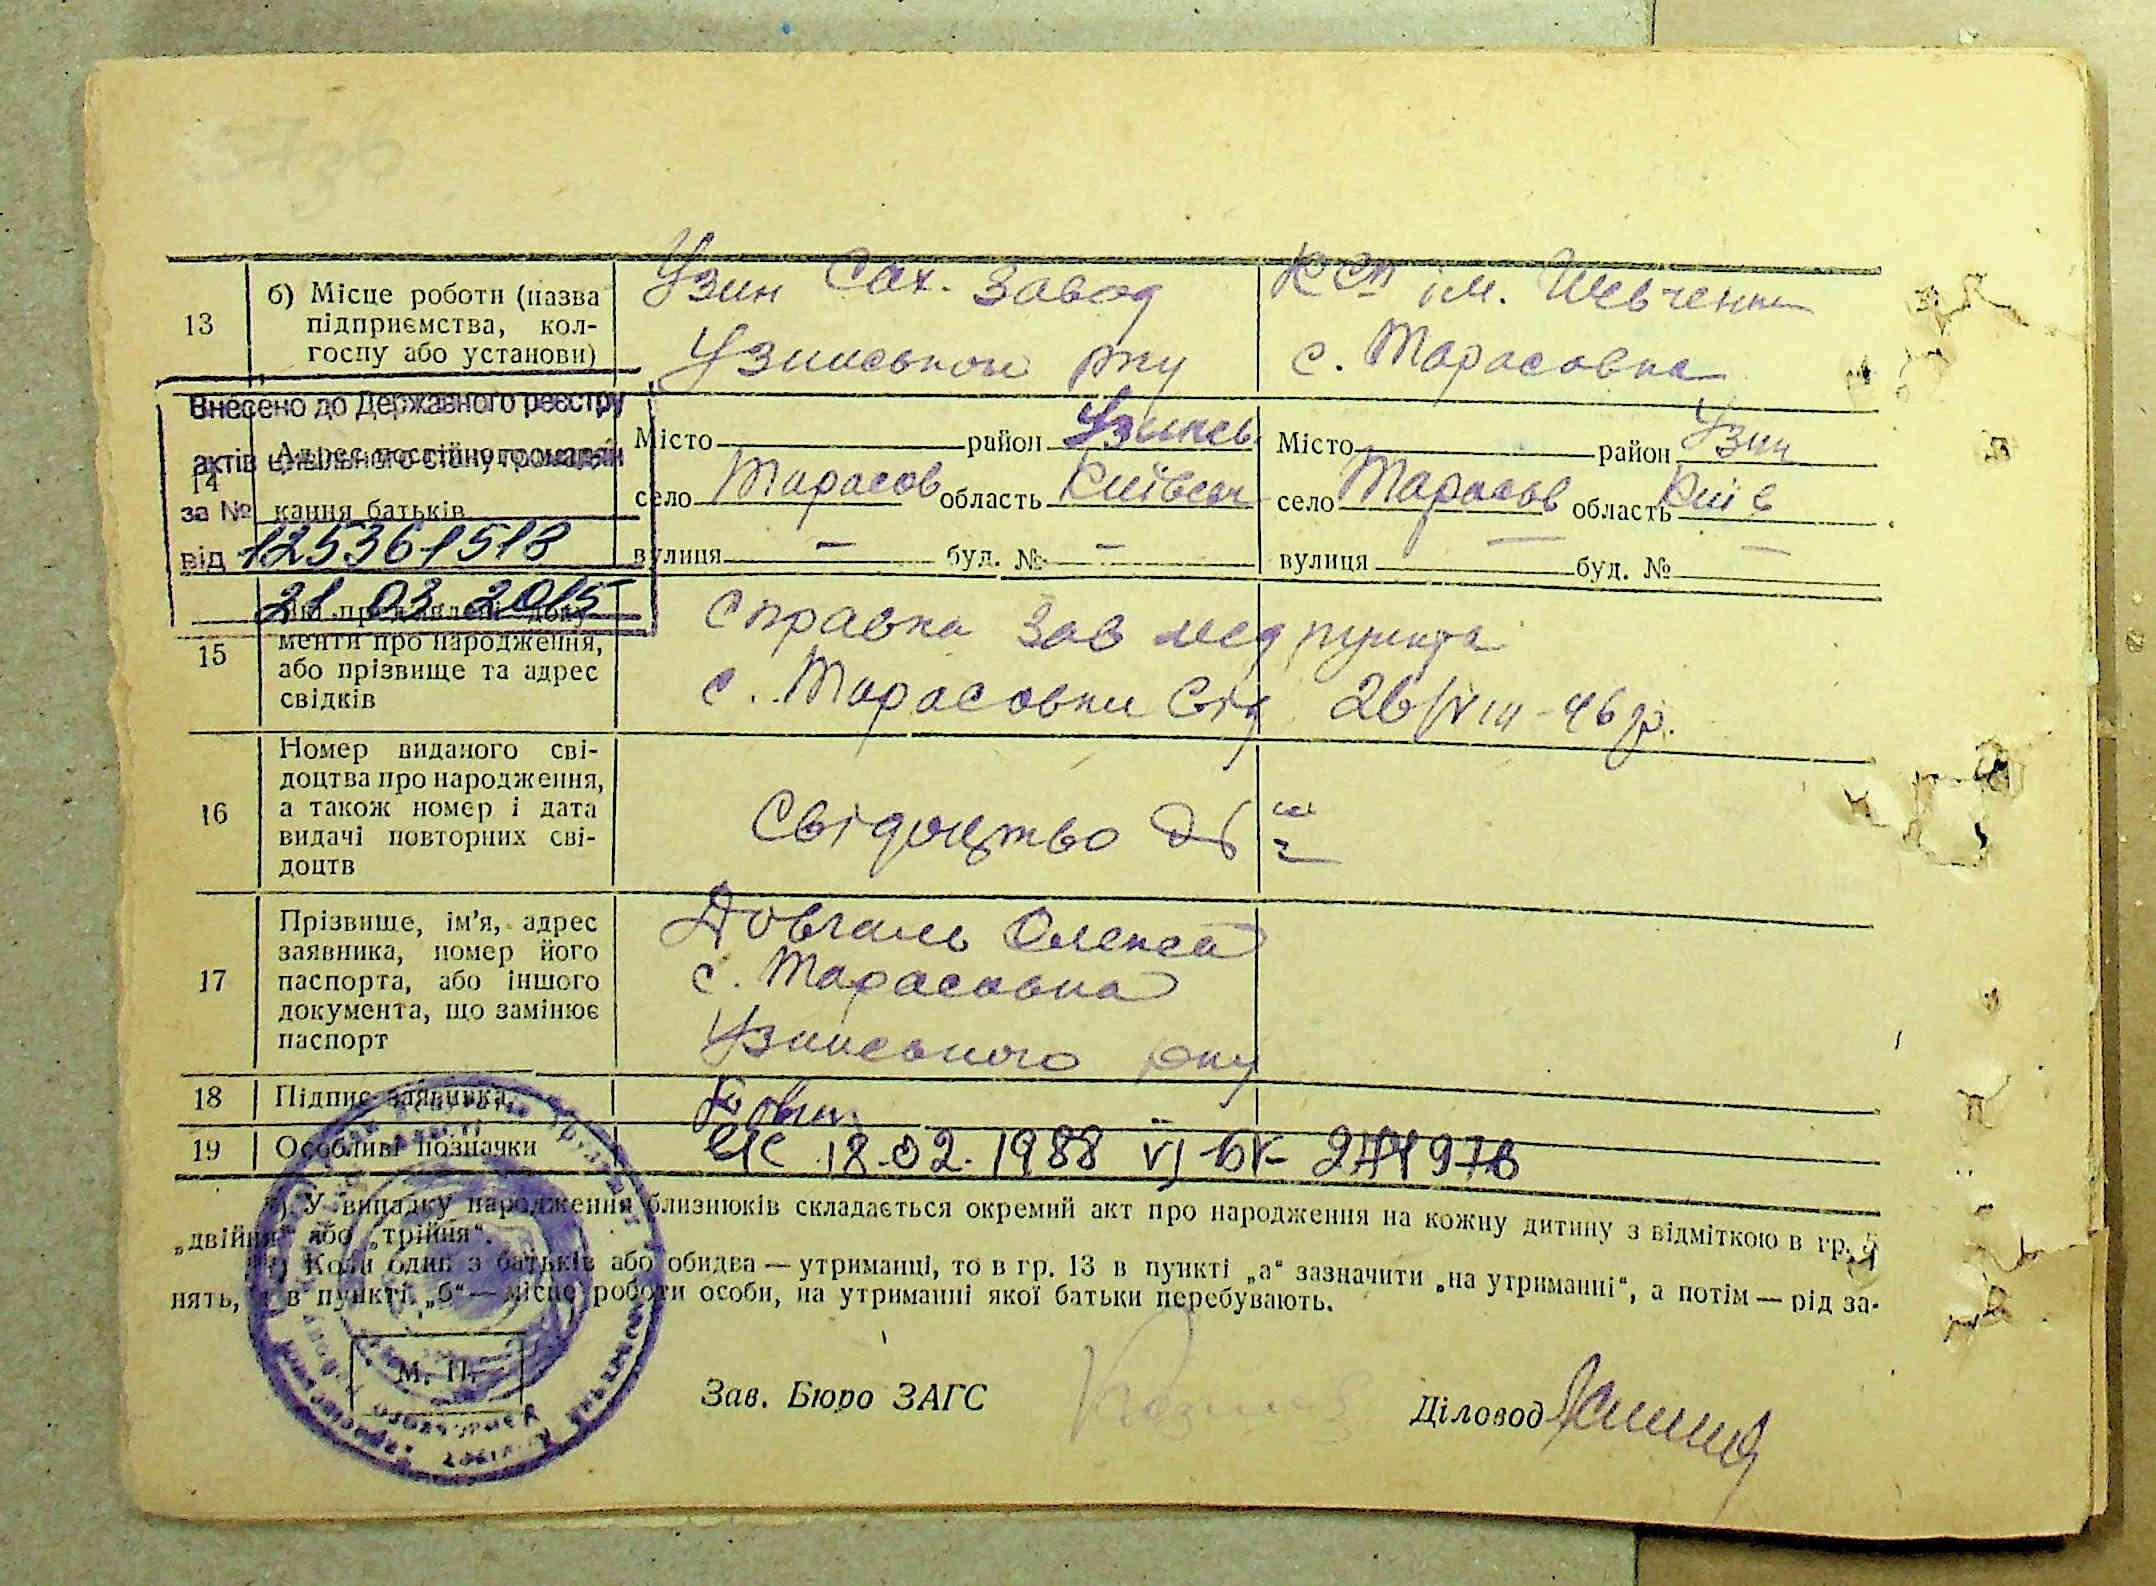 13
б) Місце роботи (назва
підприємства, кол-
госпу або установи)
Узин Сах. завод
Узинського р-ну
КСП ім. Шевченка
с. Тарасовка
Внесено до Державного реєстру
актів цивільного стану громадян
за №
від 125361518
21 03 2015
14
Адрес постійного
кання батьків
Місто район Узинсь
село Тарасов область Київськ
вулиця — буд. № —
Місто район Узин
село Тарасов область Київ
вулиця — буд. № —
15
менти про народження,
або прізвище та адрес
свідків
Справка Зав мед пункта
с. Тарасовки від 26/VIII-46 р.
16
Номер виданого сві-
доцтва про народження,
а також номер і дата
видачі повторних сві-
доцтв
Свідоцтво
17
Прізвище, ім’я, адрес
заявника, номер його
паспорта, або іншого
документа, що замінює
паспорт
Довгаль Олекса
с. Тарасовка
Узинського р-ну
18
Підпис заявника
19
Особливі позначки
18.02.1988 VI БК
*) У випадку народження близнюків складається окремий акт про народження на кожну дитину з відміткою в гр. 5
„двійня“ або „трійня“.
**) Коли один з батьків або обидва — утриманці, то в гр. 13 в пункті „а“ зазначити „на утриманні“, а потім — рід за-
нять, а в пункті „б“ — місце роботи особи, на утриманні якої батьки перебувають.
М. П.
Зав. Бюро ЗАГС
Діловод